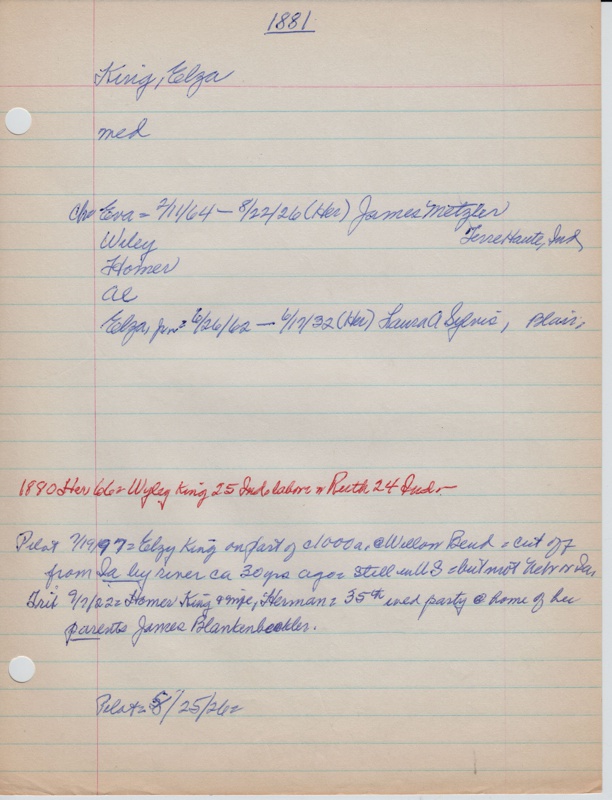 1881
King, Elza
med
ch= Eva = 2/11/64 – 8/22/26 (Her) James Metzler
Wiley Terre Haute, Ind,
Homer
Al
Elza, Jr.= 6/26/62 — 6/17/32 (Her) Laura A Sylvis, Blair,
1880 Her 66= Wyley King 25 Ind labore n Ruth 24 Ind.
Pilot 7/19/97= Elzy King on part of c1000a, @ Willow Bend = cut off
from Ia by river ca 30 yrs ago = still in US = but not Nebr n Ia,
Trib 9/7/02= Homer King & wife, Herman= 35th wed party @ home of her
parents James Blankenbeckler.
Pilot= 8/25/26=